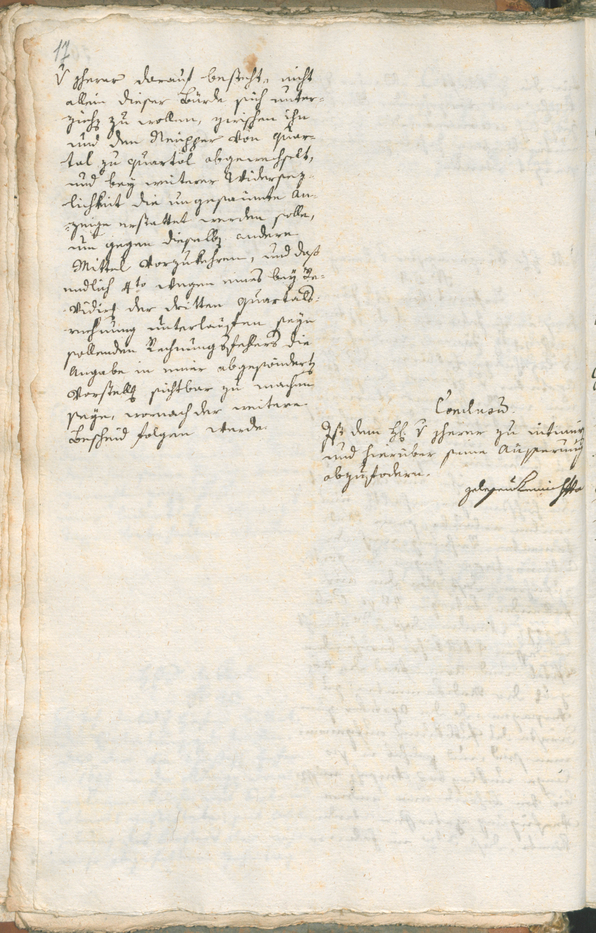 17
V pherer darauf besteht, nicht
allein dieser Bürde sich unter-
ziehe zu wollen, zwischen ihn
und den Neupper von Quar-
tal zu Quartal abgewechselt,
und bey weiterer Widersez-
lichkeit die ungesäumte An-
zeige erstattet werden solle,
um gegen dieselbe andere
Mittel vorzukehren, und daß
endlich 4to wegen eines bey Re-
vidirg der dritten Quartals-
rechnung unterlaufen seyn
sollenden Rechnungsfehlers die
Angabe in einer abgesönderte
Vorstellg sichtbar zu machen
seye, wornach der weitere
Bescheid folgen werde.
Conclusum
Ist dem H V pherer zu intimire
und hierüber seine Äusserung
abzufodern.